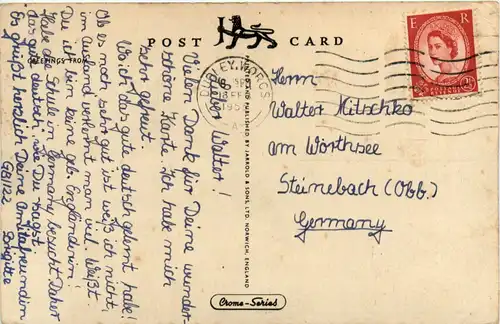 POST CARD
GREETINGS FROM
Lieber Walter!
Vielen Dank für Deine wunder-
schöne Karte. Ich habe mich
sehr gefreut.
Woich das gute deutsch gelernt habe!
Ob es noch sehr gut ist weiß ich nicht,
im Ausland verlernt man viel. Weißt
Du ich bin keine geb. Engländerin!
Habe die Schule in Germany besucht. Daher
das gute deutsch, wie Du sagst.
Es grüßt herzlich Deine Amitafreundin
GB1122 Brigitte
PRINTED AND PUBLISHED BY JARROLD & SONS LTD. NORWICH, ENGLAND
Crome-Series
DUDLEY. WORCS
E R
Herrn
Walter Mitschko
am Wörthsee
Steinebach (Obb.)
Germany